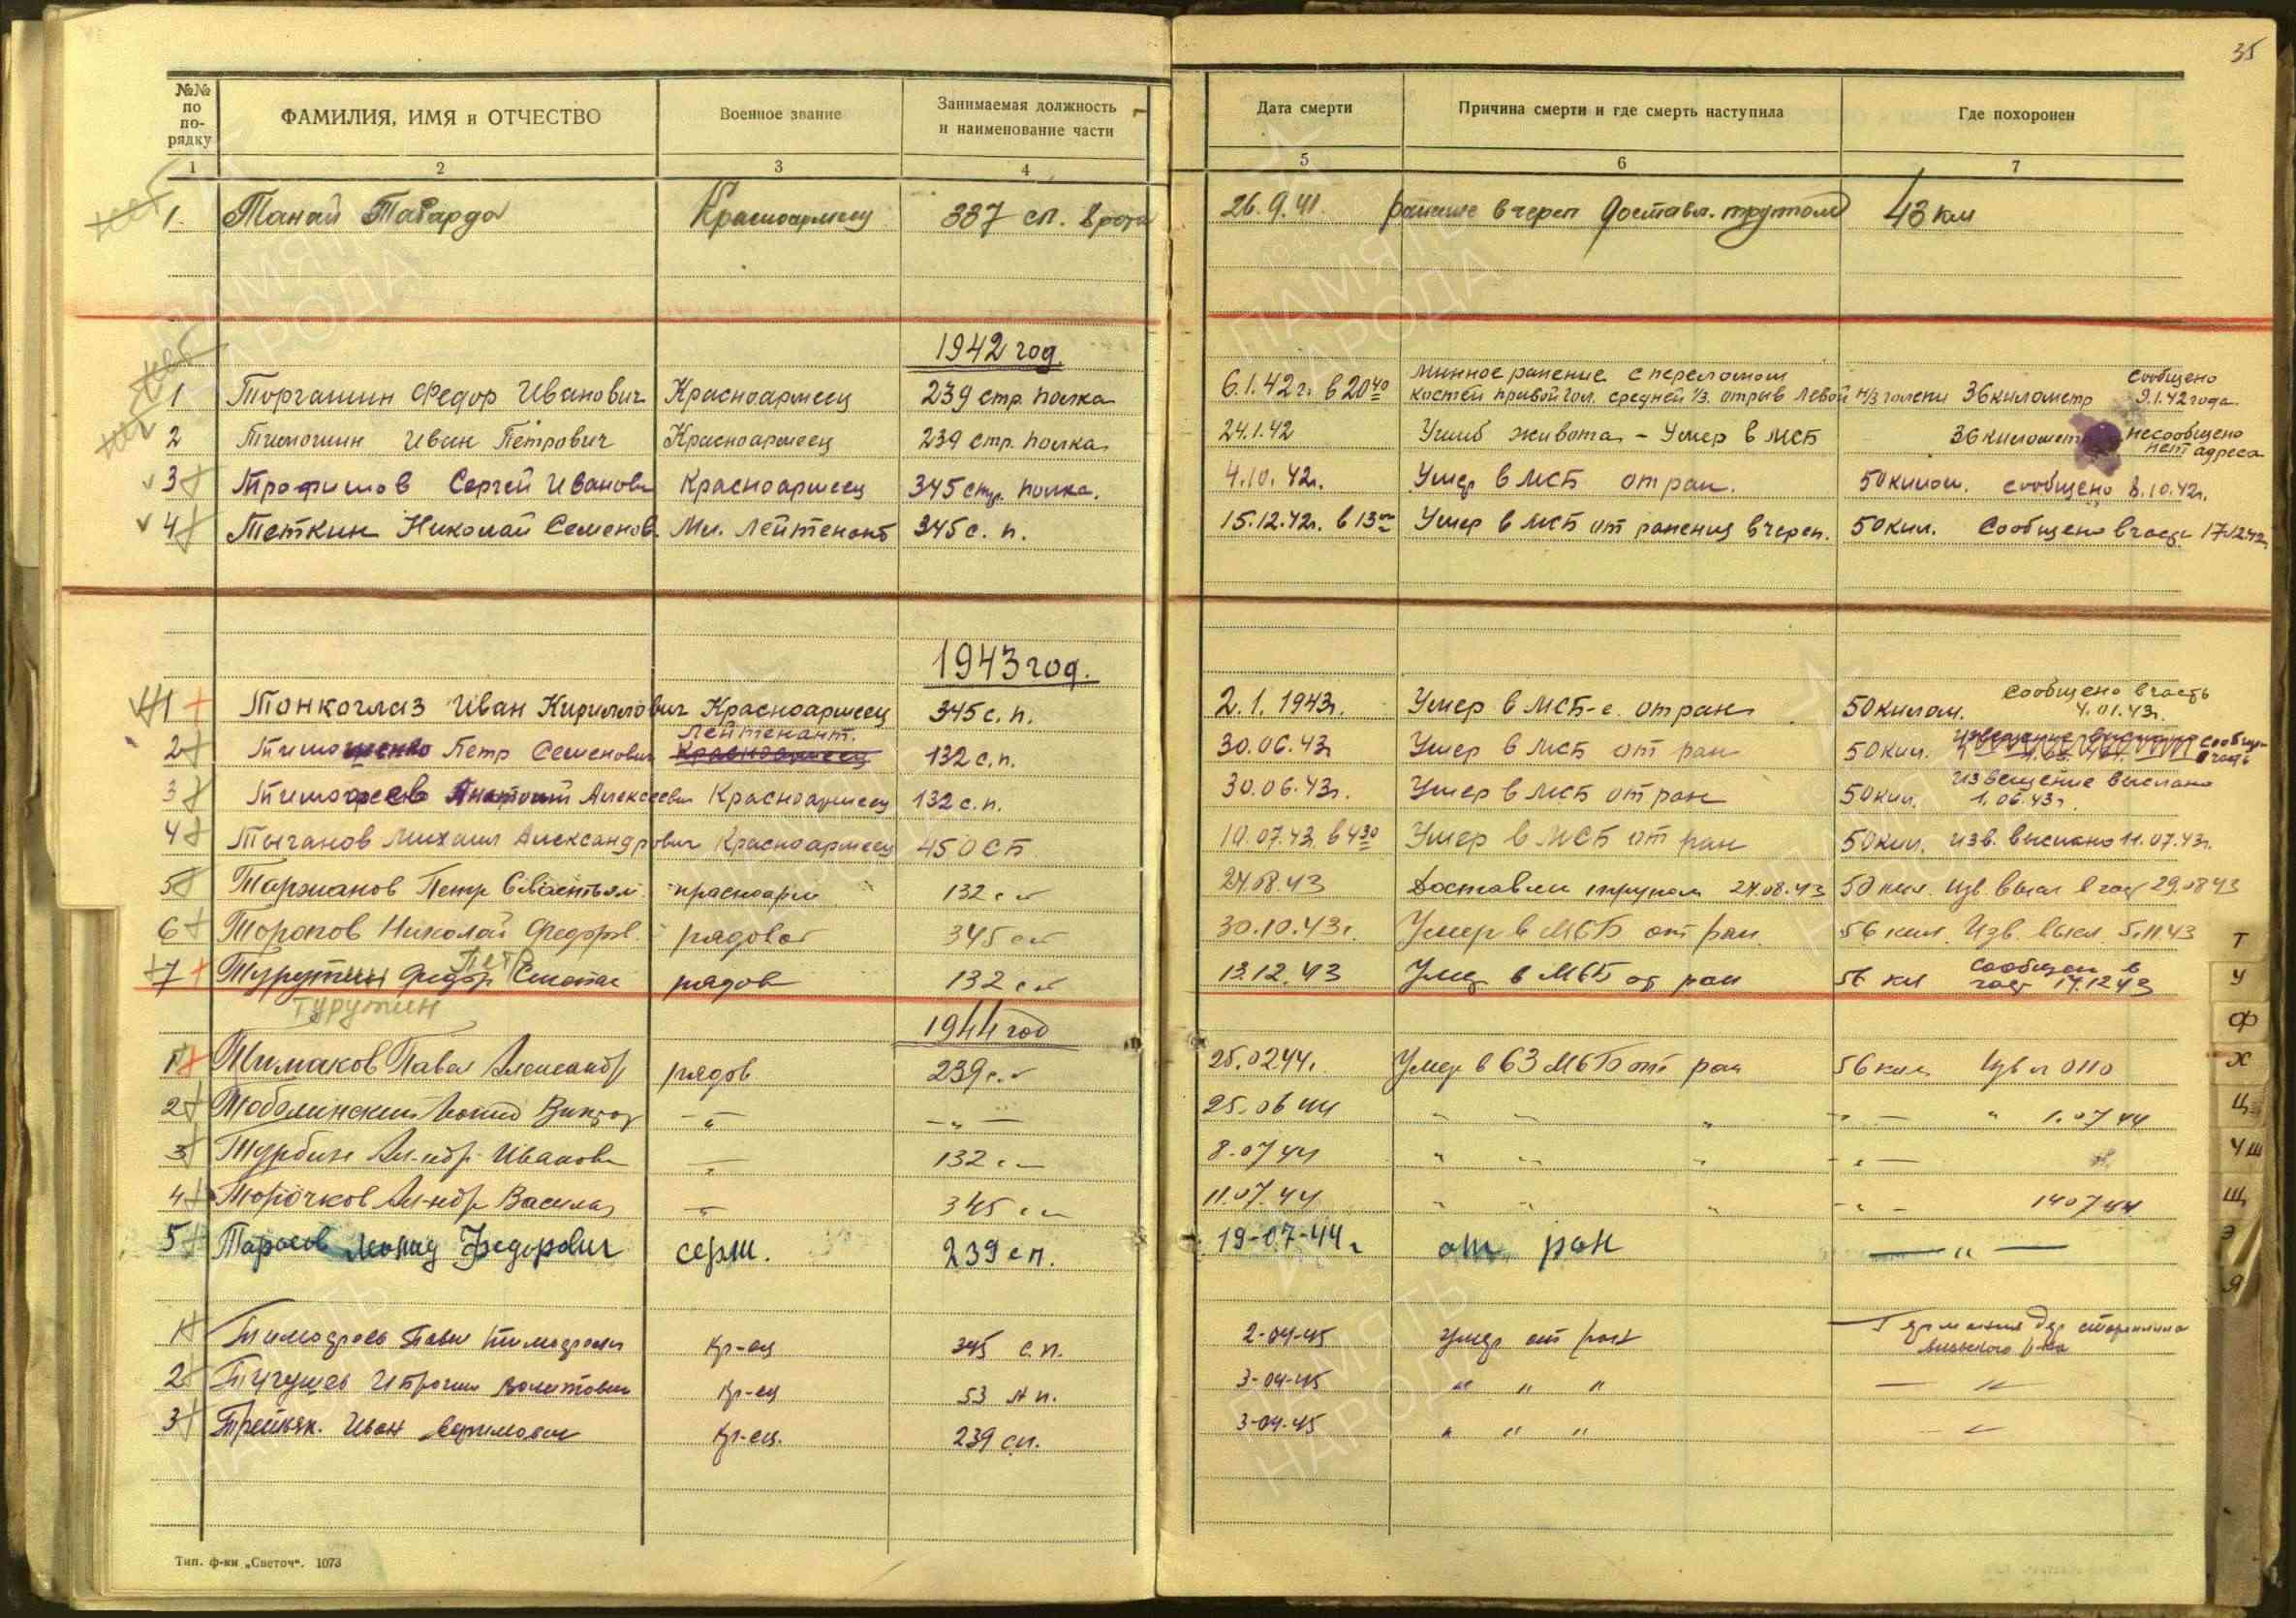 35
№№ по по- рядку
ФАМИЛИЯ, ИМЯ и ОТЧЕСТВО
Военное звание
Занимаемая должность и наименование части
Дата смерти
Причина смерти и где смерть наступила
Где похоронен
1 2 3 4 5 6 7
нет 1. Танай Красноармеец 337 сп. 8 рота 26.9.41. ранение в череп доставл. трупом 43 км
1942 год.
нет 1 Торгашин Федор Иванович Красноармеец 239 стр. полка 6.1.42 г. в 20 40 минное ранение с переломом костей правой гол. средней 1/3. отрыв левой н/3 голени 36 километр сообщено 9.1.42 года
нет 2 Тимошин Иван Петрович Красноармеец 239 стр. полка 24.1.42 Ушиб живота - Умер в МСБ 36 километ несообщено нет адреса
3 Трофимов Сергей Иванови Красноармеец 345 стр. полка. 4.10.42г. Умер в МСБ от ран. 50 килом. сообщено 8.10.42г.
4 Теткин Николай Семенов. Мл. Лейтенант 345 с. п. 15.12.42г. в 13 Умер в МСБ от ранения в череп. 50 кил. Сообщено в часть 17.12.42
1943 год.
1 Тонкоглаз Иван Кириллович Красноармеец 345 с. п. 2.1.1943г. Умер в МСБ-е от ран 50 килом. Сообщено в часть 4.01.43г.
2 Тимошенко Петр Семенович Лейтенант. Красноармеец 132 с. п. 30.06.43г Умер в МСБ от ран 50 кил.
3 Тимофеев Анатолий Алексеевич Красноармеец 132 с. п. 30.06.43г. Умер в МСБ от ран 50 кил. Извещение выслано 1.06.43г.
4 Тыганов Михаил Александрович Красноармеец 450 СБ 10.07.43 в 4 30 Умер в МСБ от ран 50 кил. изв. выслано 11.07.43г.
5 Таржанов Петр красноарм 132 сп 24.08.43 Доставлен трупом 24.08.43 50 кил. Изв. высл в част 29.08 43
6 Торопов Николай Федоров. рядовой 345 сп 30.10.43г. Умер в МСБ от ран. 56 кил. Изв. высл. 5.11.43
7 Турутин Федор Степан Петр рядов 132 сп 13.12.43 Умер в МСБ от ран 56 кил сообщен в част 17.12 43
Турутин
1944 год
1 Тимаков Павел Александр рядов 239 сп 25.02 44. Умер в 63 МСБ от ран 56 кил
2 Викто 〃 — 〃 — 25.06 44 〃 〃 〃 — 〃 — 〃 1.07 44
3 Турбин Ал-ндр Иванови 〃 132 сп 8.07 44 〃 〃 〃 — 〃 —
4 Торочков Ал-ндр Василь 〃 345 сп 11.07.44 〃 〃 〃 — 〃 — 14 07 44
5 Тарасов Леонид Федорович серж. 239 сп. 19-07-44г от ран — 〃 —
1 Тимофеев Павел Тимофеевич кр-ец 345 с.п. 2-04-45 Умер от ран Германия
2 кр-ец 53 п. 3-04-45 〃 〃 〃 — 〃
3 Третьяк. Иван кр-ец. 239 сп. 3-04-45 〃 〃 〃 — 〃
Т
У
Ф
Х
Ц
Ч Ш
Щ
Э
Я
Тип. ф-ки „Светоч“. 1073
ПАМЯТЬ НАРОДА